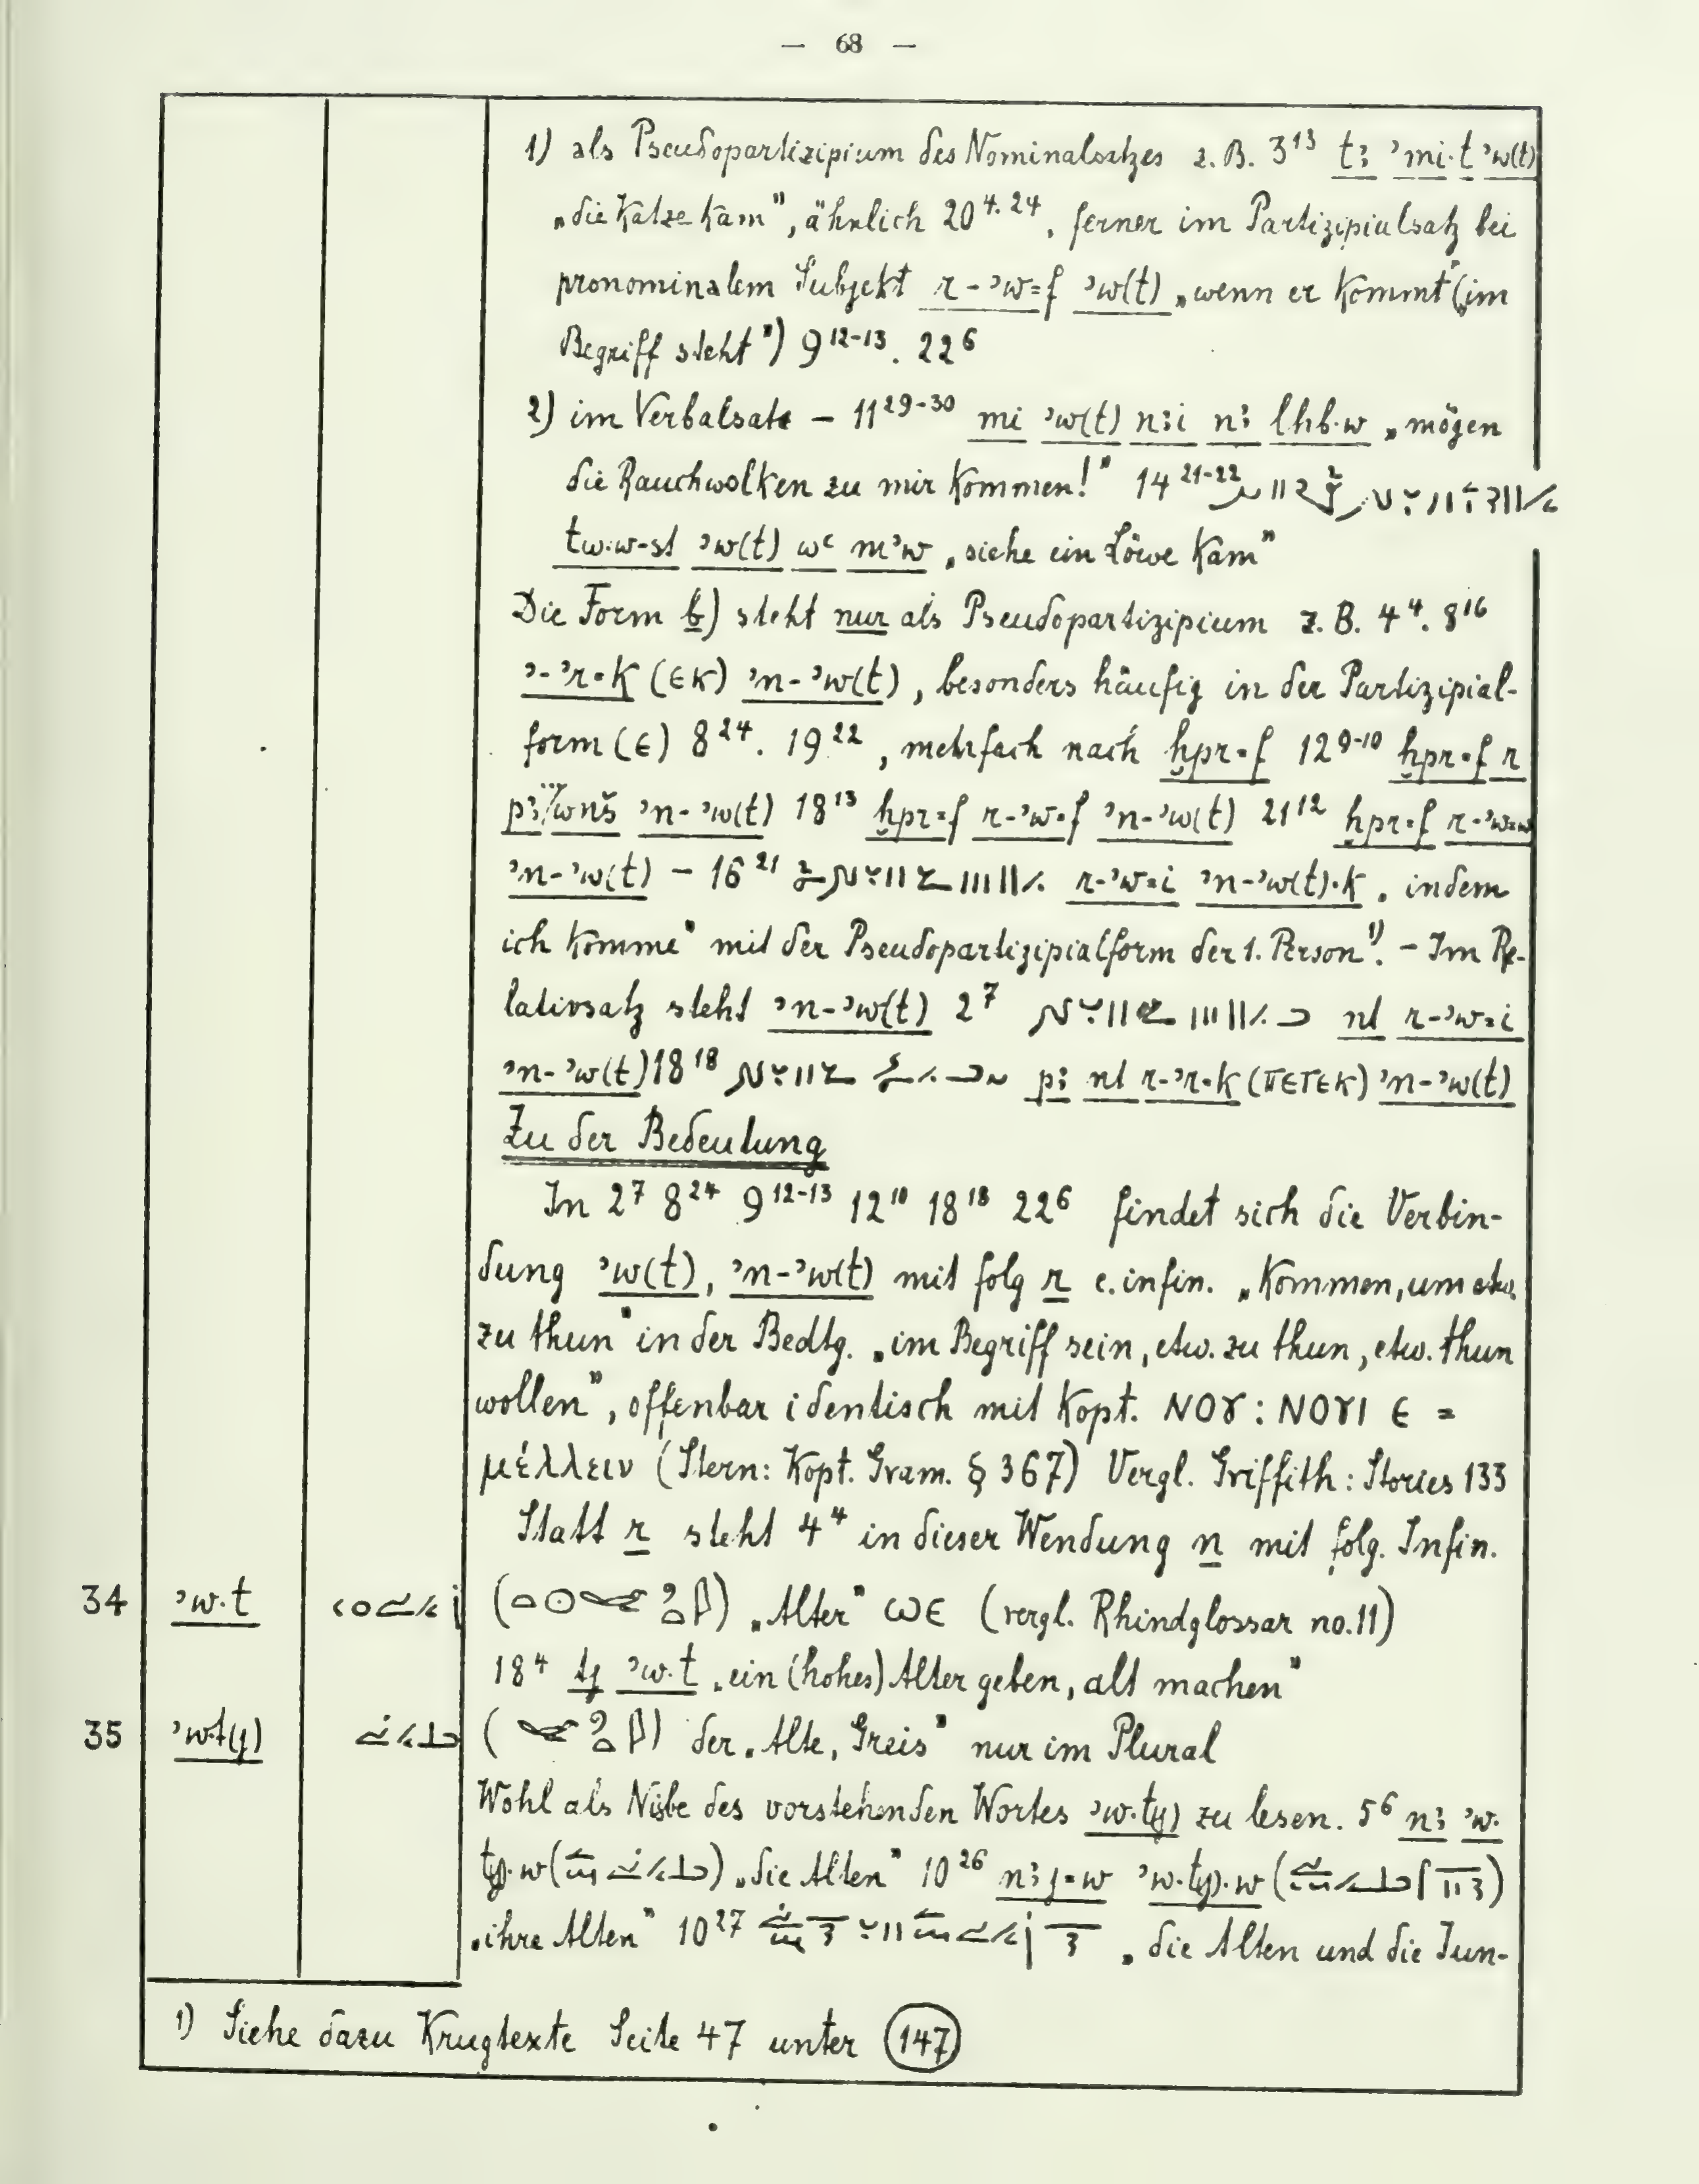 — 68 —
1) als Pseudopartizipium des Nominalsatzes z. B. 3¹³ tꜣ ʾmi·t ʾw(t)
„die Katze kam”, ähnlich 20⁴·²⁴, ferner im Partizipialsatz bei
pronominalem Subjekt r-ʾw=f ʾw(t) „wenn er kommt” („im
Begriff steht”) 9¹²⁻¹³. 22⁶
2) im Verbalsatz – 11²⁹⁻³⁰ mi ʾw(t) n:i nꜣ lhb·w „mögen
die Rauchwolken zu mir kommen!” 14²¹⁻²²
tw·w-st ʾw(t) wꜥ mʾw „siehe ein Löwe kam”
Die Form b) steht nur als Pseudopartizipium z. B. 4⁴. 8¹⁶
ʾ-ʾr=k (ⲉⲕ) ʾn-ʾw(t), besonders häufig in der Partizipial-
form (ⲉ) 8²⁴. 19²², mehrfach nach ḫpr=f 12⁹⁻¹⁰ ḫpr=f r
pꜣ wnš ʾn-ʾw(t) 18¹³ ḫpr=f r-ʾw=f ʾn-ʾw(t) 21¹² ḫpr=f r-ʾw=w
ʾn-ʾw(t) – 16²¹ r-ʾw=i ʾn-ʾw(t)·k „indem
ich komme” mit der Pseudopartizipialform der 1. Person¹⁾. – Im Re-
lativsatz steht ʾn-ʾw(t) 2⁷ nt r-ʾw=i
ʾn-ʾw(t) 18¹⁸ pꜣ nt r-ʾr=k (ⲡⲉⲧⲉⲕ) ʾn-ʾw(t)
Zu der Bedeutung
In 2⁷ 8²⁴ 9¹²⁻¹³ 12¹⁰ 18¹⁸ 22⁶ findet sich die Verbin-
dung ʾw(t), ʾn-ʾw(t) mit folg r c. infin. „kommen, um etw.
zu thun” in der Bedtg. „im Begriff sein, etw. zu thun, etw. thun
wollen”, offenbar identisch mit kopt. ⲛⲟⲩ : ⲛⲟⲩⲓ ⲉ =
μέλλειν (Stern: Kopt. Gram. § 367) Vergl. Griffith: Stories 133
Statt r steht 4⁴ in dieser Wendung n mit folg. Infin.
34 ʾw·t „Alter” ⲱⲉ (vergl. Rhindglossar no. 11)
18⁴ tj ʾw·t „ein (hohes) Alter geben, alt machen”
35 ʾw·t(j) der „Alte, Greis” nur im Plural
Wohl als Nisbe des vorstehenden Wortes ʾw·t(j) zu lesen. 5⁶ nꜣ ʾw·
t(j)·w „die Alten” 10²⁶ nꜣj=w ʾw·t(j)·w
„ihre Alten” 10²⁷ „die Alten und die Jun-
1) Siehe dazu Krugtexte Seite 47 unter 147